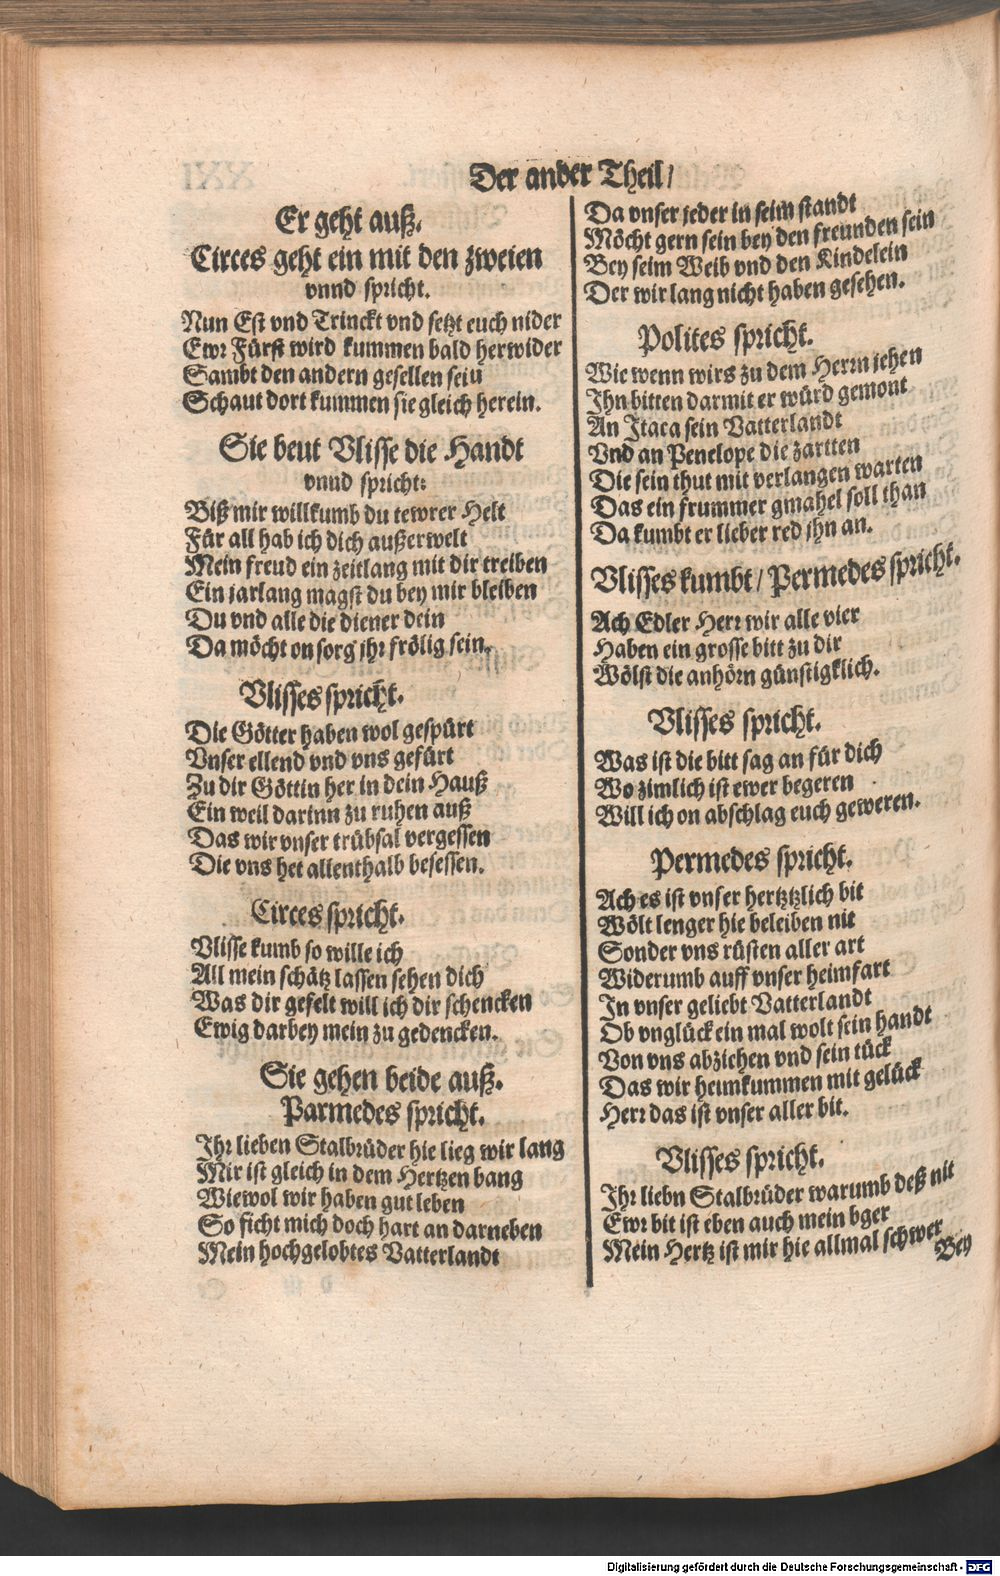 Der ander Theil/
Er geht auß.
Circes geht ein mit den zweien
vnnd spricht.
Nun Est vnd Trinckt vnd setzt euch nider
Ewr Fürst wird kummen bald herwider
Sambt den andern gesellen sein
Schaut dort kummen sie gleich herein.
Sie beut Vlisse die Handt
vnnd spricht:
Biß mir willkumb du tewrer Helt
Für all hab ich dich außerwelt
Mein freud ein zeitlang mit dir treiben
Ein jarlang magst du bey mir bleiben
Du vnd alle die diener dein
Da möcht on sorg jhr frölig sein.
Vlisses spricht.
Die Götter haben wol gespürt
Vnser ellend vnd vns gefürt
Zu dir Göttin her in dein Hauß
Ein weil darinn zu ruhen auß
Das wir vnser trübsal vergessen
Die vns het allenthalb besessen.
Circes spricht.
Vlisse kumb so wille ich
All mein schätz lassen sehen dich
Was dir gefelt will ich dir schencken
Ewig darbey mein zu gedencken.
Sie gehen beide auß.
Parmedes spricht.
Ihr lieben Stalbrüder hie lieg wir lang
Mir ist gleich in dem Hertzen bang
Wiewol wir haben gut leben
So ficht mich doch hart an darneben
Mein hochgelobtes Vatterlandt
Da vnser jeder in seim standt
Möcht gern sein bey den freunden sein
Bey seim Weib vnd den Kindelein
Der wir lang nicht haben gesehen.
Polites spricht.
Wie wenn wirs zu dem Herrn jehen
Ihn bitten darmit er würd gemont
An Itaca sein Vatterlandt
Vnd an Penelope die zartten
Die sein thut mit verlangen warten
Das ein frummer gmahel soll than
Da kumbt er lieber red jhn an.
Vlisses kumbt/ Permedes spricht.
Ach Edler Herr wir alle vier
Haben ein grosse bitt zu dir
Wölst die anhörn günstigklich.
Vlisses spricht.
Was ist die bitt sag an für dich
Wo zimlich ist ewer begeren
Will ich on abschlag euch geweren.
Permedes spricht.
Ach es ist vnser hertztzlich bit
Wölt lenger hie beleiben nit
Sonder vns rüsten aller art
Widerumb auff vnser heimfart
In vnser geliebt Vatterlandt
Ob vnglück ein mal wolt sein handt
Von vns abziehen vnd sein tück
Das wir heimkummen mit gelück
Herr das ist vnser aller bit.
Vlisses spricht.
Ihr liebn Stalbrüder warumb deß nit
Ewr bit ist eben auch mein bger
Mein Hertz ist mir hie allmal schwer
Bey
Digitalisierung gefördert durch die Deutsche Forschungsgemeinschaft - DFG